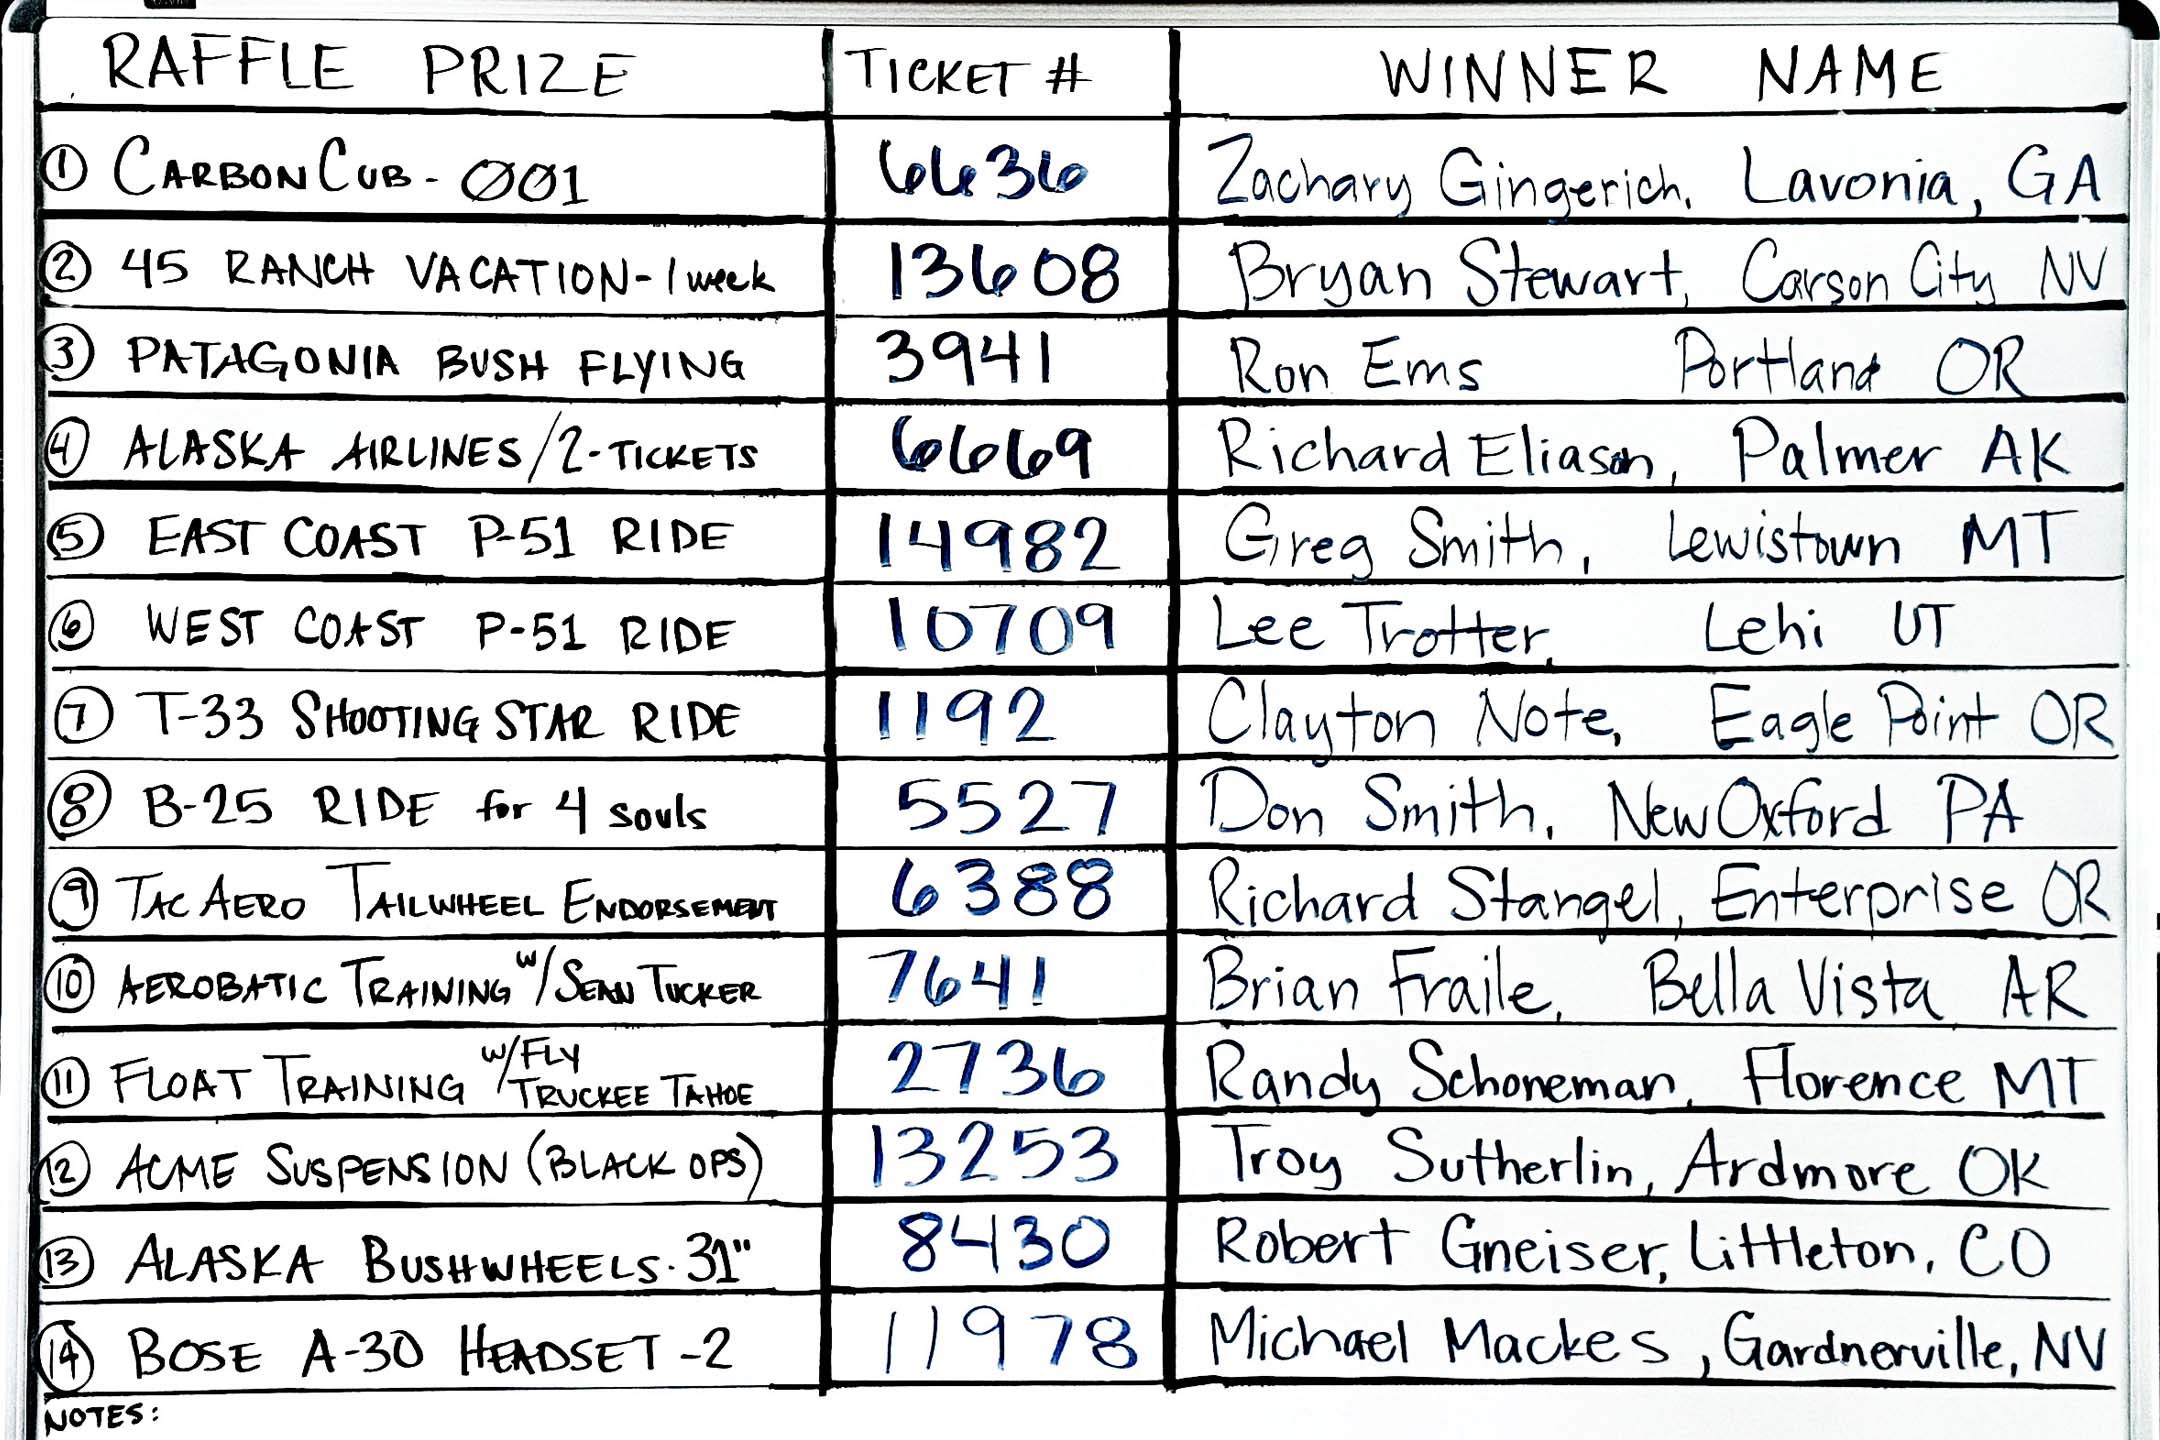 RAFFLE PRIZE TICKET # WINNER NAME
① CARBON CUB - 001 6636 Zachary Gingerich, Lavonia, GA
② 45 RANCH VACATION - 1 week 13608 Bryan Stewart, Carson City NV
③ PATAGONIA BUSH FLYING 3941 Ron Ems Portland OR
④ ALASKA AIRLINES/2-TICKETS 6669 Richard Eliason, Palmer AK
⑤ EAST COAST P-51 RIDE 14982 Greg Smith, Lewistown MT
⑥ WEST COAST P-51 RIDE 10709 Lee Trotter, Lehi UT
⑦ T-33 SHOOTING STAR RIDE 1192 Clayton Note, Eagle Point OR
⑧ B-25 RIDE for 4 souls 5527 Don Smith, New Oxford PA
⑨ TAC AERO TAILWHEEL ENDORSEMENT 6388 Richard Stangel, Enterprise OR
⑩ AEROBATIC TRAINING w/SEAN TUCKER 7641 Brian Fraile, Bella Vista AR
⑪ FLOAT TRAINING w/FLY TRUCKEE TAHOE 2736 Randy Schoneman, Florence MT
⑫ ACME SUSPENSION (BLACK OPS) 13253 Troy Sutherlin, Ardmore OK
⑬ ALASKA BUSHWHEELS - 31" 8430 Robert Gneiser, Littleton, CO
⑭ BOSE A-30 HEADSET - 2 11978 Michael Mackes, Gardnerville, NV
NOTES: